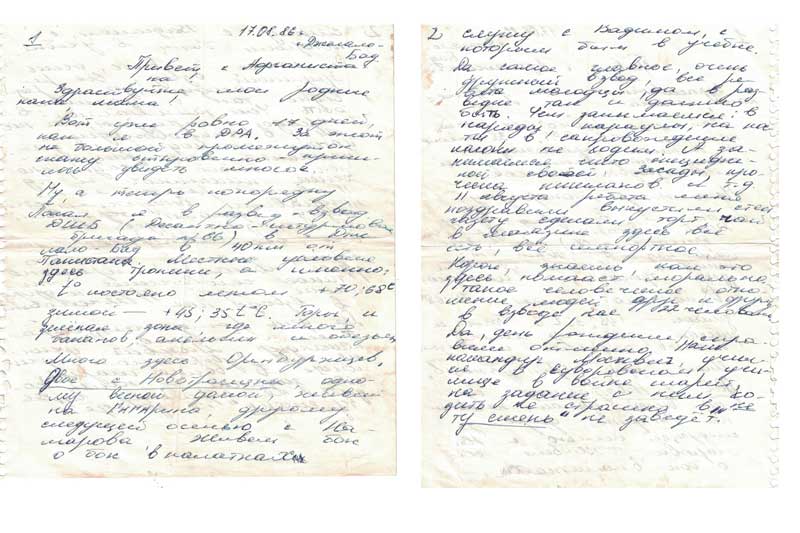 1
17.08.86 г
г. Джелало-
Бад
Привет, с Афганиста
на
Здравствуйте, мои родные
папа, мама,
Вот уже ровно 17 дней,
как я в ДРА. За этот
не большой промежуток
откровенно
увидеть многое.
Ну, а теперь поподробну
Попал я в развед-взвод
ДШБ Десантно-штурмовая
бригада
лало-Бад в 40 км от
Пакистана. Местность условия
здесь тропики, а именно:
t° постояно летом +70; 68°С
зимой — +45; 35 t°С. Горы и
зона, где много
бананов, апельсин и обезьян
Много здесь Оренбуржцев,
Двое с Новотроицка, одно-
му весной домой, живёт
на Гагарина, другому
следущей осенью с Ко-
марова живём бок
о бок в палатках
2
служу с Вадимом, с
которым был в учебке.
Да самое главное, очень
дружный взвод, все ре
бята молодцы, да в раз
ведке так и должно
быть. Чем занимаемся: в
наряды, караулы, на по
сты, в сапровождение
колонн не ходим. А за-
нимаемся чисто специфич-
ной своей: Засады, про-
ческа кишлаков и т.д
11 августа ребята меня
поздравили,
газету сделали торт чай
в магазине здесь всё
есть, всё импортное.
Короче, знаешь, как это
здесь помогает морально,
такое человеческое отно
шение людей друг к другу
в взводе нас 22 человека
Да, день рождения спра-
вили отлично, наш
командир Москвич, учи-
лся в суворовском учи-
лище
на задание с ним хо-
дить не страшно в "че
ту смень" не заведёт.